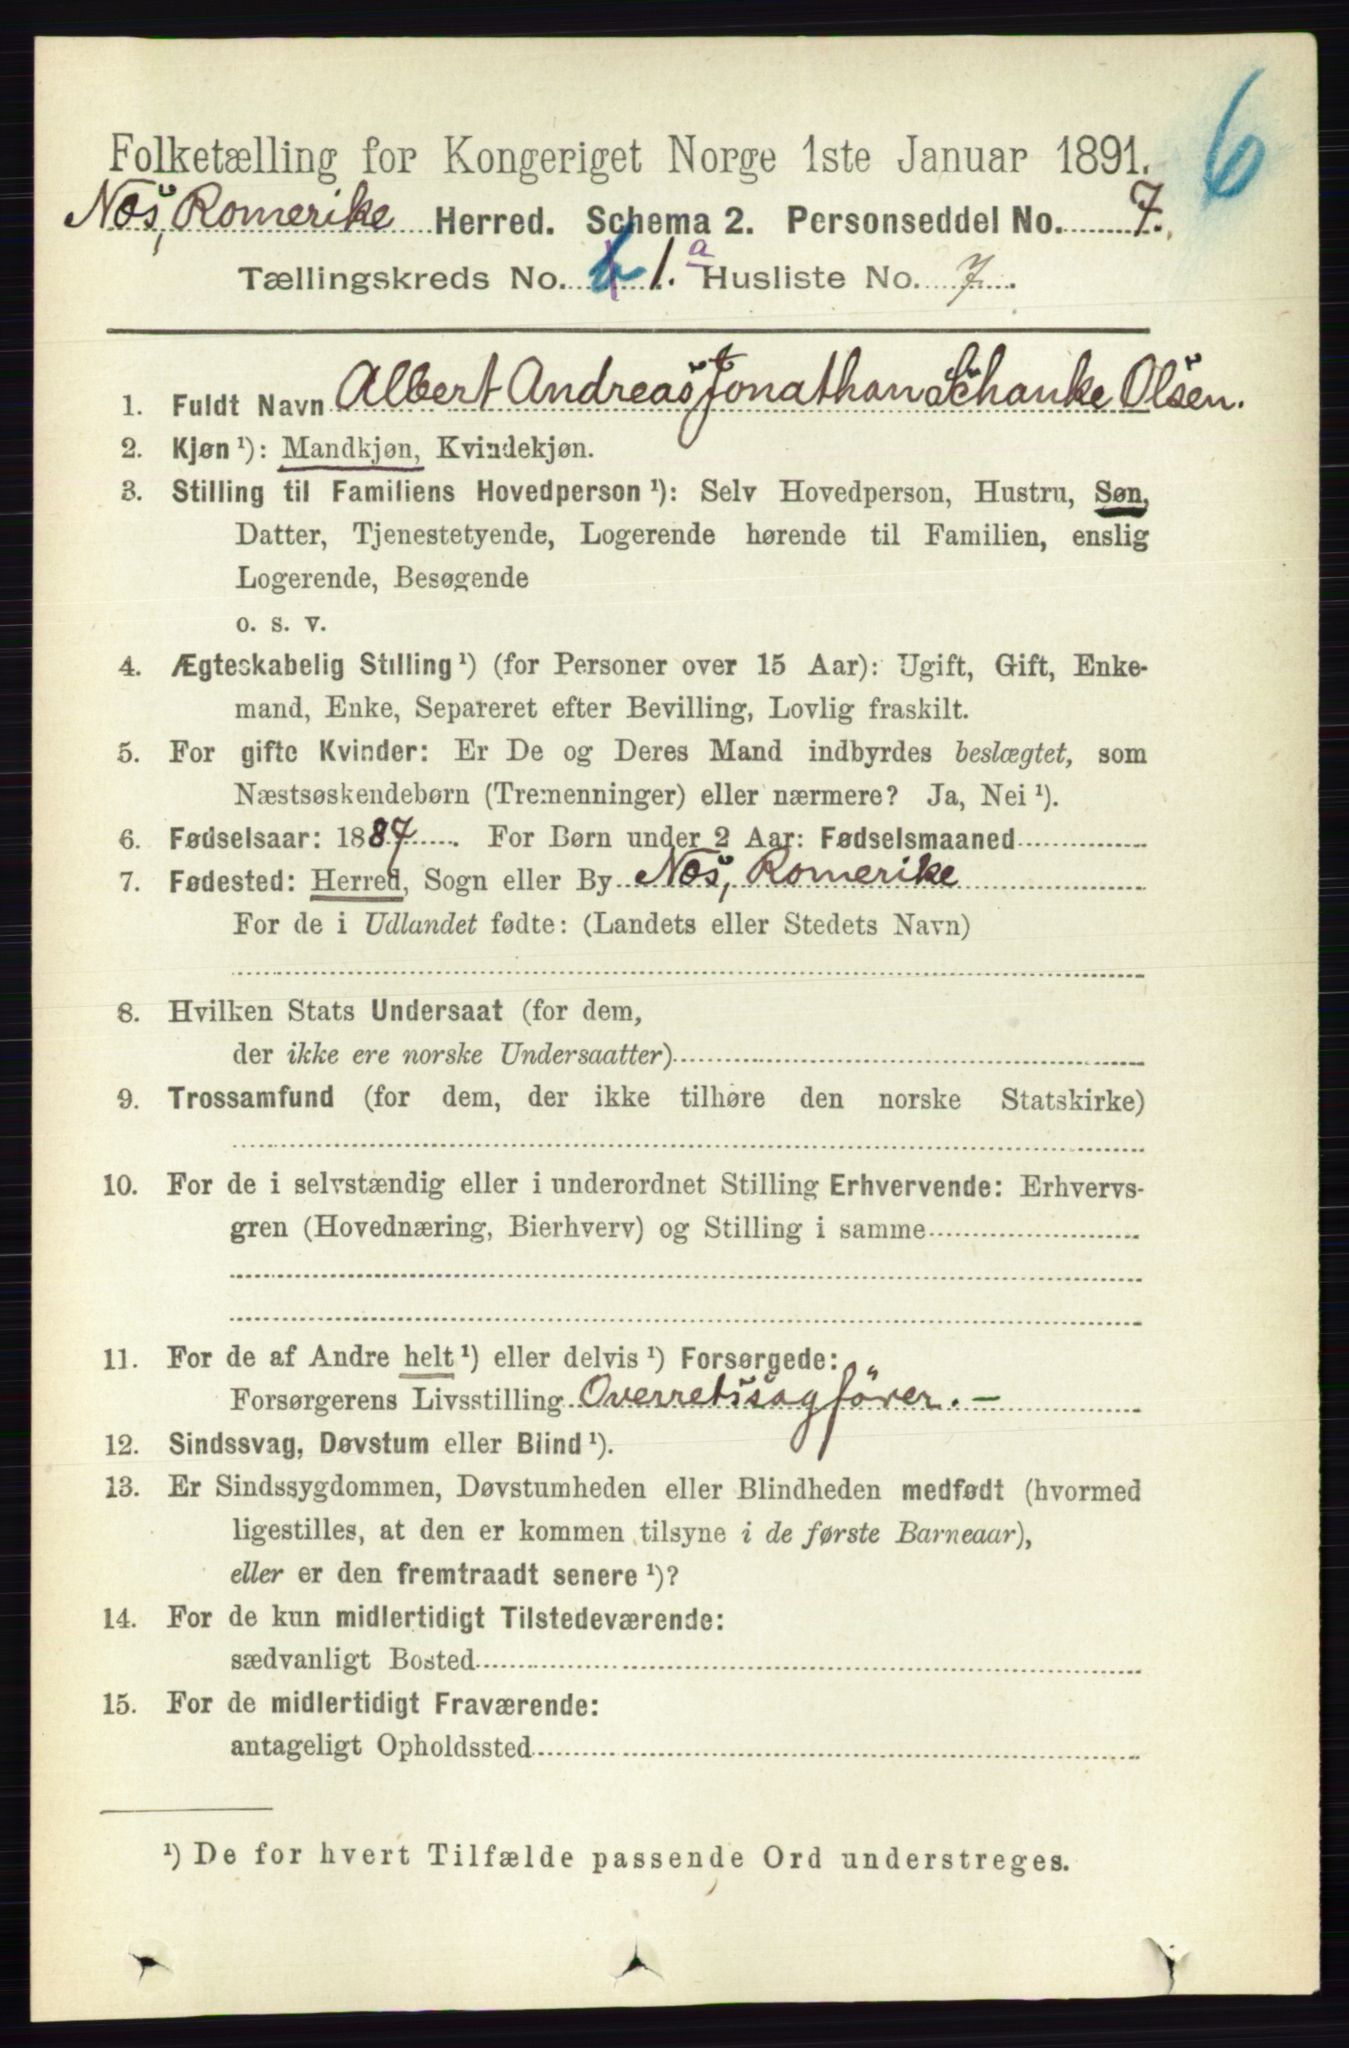 6
Folketælling for Kongeriget Norge 1ste Januar 1891.
Næs, Romerike Herred. Schema 2. Personseddel No. 7.
Tællingskreds No. 1.a Husliste No. 7
1. Fuldt Navn Albert Andreas Jonathan Schanke Olsen.
2. Kjøn ¹): Mandkjøn, Kvindekjøn.
3. Stilling til Familiens Hovedperson ¹): Selv Hovedperson, Hustru, Søn,
Datter, Tjenestetyende, Logerende hørende til Familien, enslig
Logerende, Besøgende
o. s. v.
4. Ægteskabelig Stilling ¹) (for Personer over 15 Aar): Ugift, Gift, Enke-
mand, Enke, Separeret efter Bevilling, Lovlig fraskilt.
5. For gifte Kvinder: Er De og Deres Mand indbyrdes beslægtet, som
Næstsøskendebørn (Tremenninger) eller nærmere? Ja, Nei ¹).
6. Fødselsaar: 1887. For Børn under 2 Aar: Fødselsmaaned
7. Fødested: Herred, Sogn eller By Næs, Romerike
For de i Udlandet fødte: (Landets eller Stedets Navn)
8. Hvilken Stats Undersaat (for dem,
der ikke ere norske Undersaatter)
9. Trossamfund (for dem, der ikke tilhøre den norske Statskirke)
10. For de i selvstændig eller i underordnet Stilling Erhvervende: Erhvervs-
gren (Hovednæring, Bierhverv) og Stilling i samme
11. For de af Andre helt ¹) eller delvis ¹) Forsørgede:
Forsørgerens Livsstilling Overretssagfører. —
12. Sindssvag, Døvstum eller Blind ¹).
13. Er Sindssygdommen, Døvstumheden eller Blindheden medfødt (hvormed
ligestilles, at den er kommen tilsyne i de første Barneaar),
eller er den fremtraadt senere ¹)?
14. For de kun midlertidigt Tilstedeværende:
sædvanligt Bosted
15. For de midlertidigt Fraværende:
antageligt Opholdssted
¹) De for hvert Tilfælde passende Ord understreges.